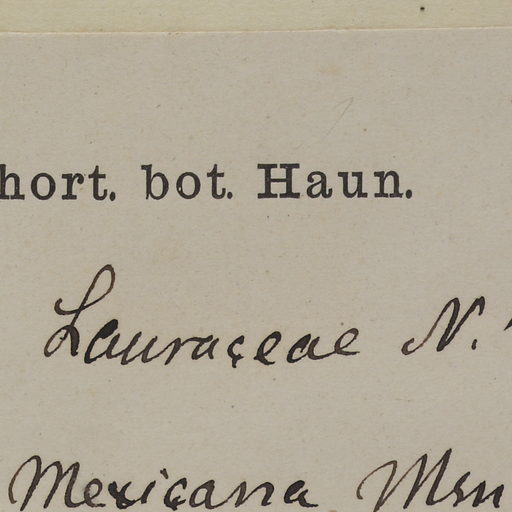 hort. bot. Haun.
Lauraceae N.
Mexicana Msn